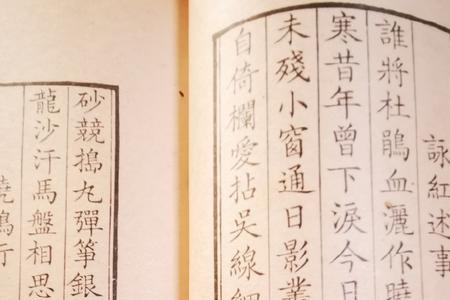 詠紅述事
誰將杜鵑血灑作曉
寒昔年曾下淚今日
未殘小窗通日影
自倚欄愛拈吳線細
砂競搗丸彈箏銀
龍沙汗馬盤相思
行